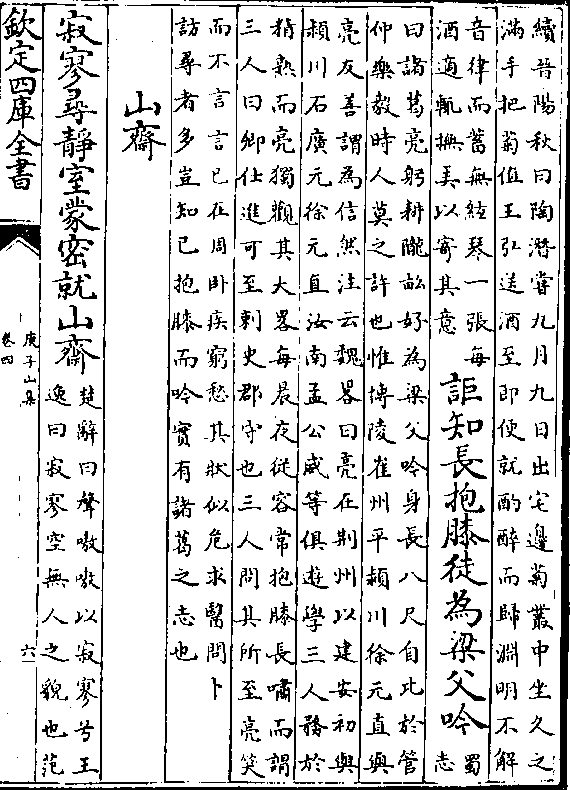 續晉陽秋曰陶潛嘗九月九日出宅邊菊叢中坐久之
滿手把菊值王弘送酒至即便就酌醉而歸淵明不解
音律而蓄無絃琴一張每
酒適輒撫弄以寄其意
詎知長抱膝徒為梁父吟
蜀
志
曰諸葛亮躬耕隴畝好為梁父吟身長八尺自比於管
仲樂毅時人莫之許也惟博陵崔州平潁川徐元直與
亮友善謂為信然注云魏畧曰亮在荆州以建安初與
潁川石廣元徐元直汝南孟公威等俱遊學三人務於
精熟而亮獨觀其大畧每晨夜從容常抱膝長嘯而謂
三人曰卿仕進可至刺史郡守也三人問其所至亮笑
而不言言已在周卧疾窮愁其狀似危求醫問卜
訪尋者多豈知已抱膝而吟實有諸葛之志也
山齋
寂寥尋靜室蒙密就山齋
楚辭曰聲嗷嗷以寂寥兮王
逸曰寂寥空無人之貌也范
欽定四庫全書
庾子山集
卷四
六